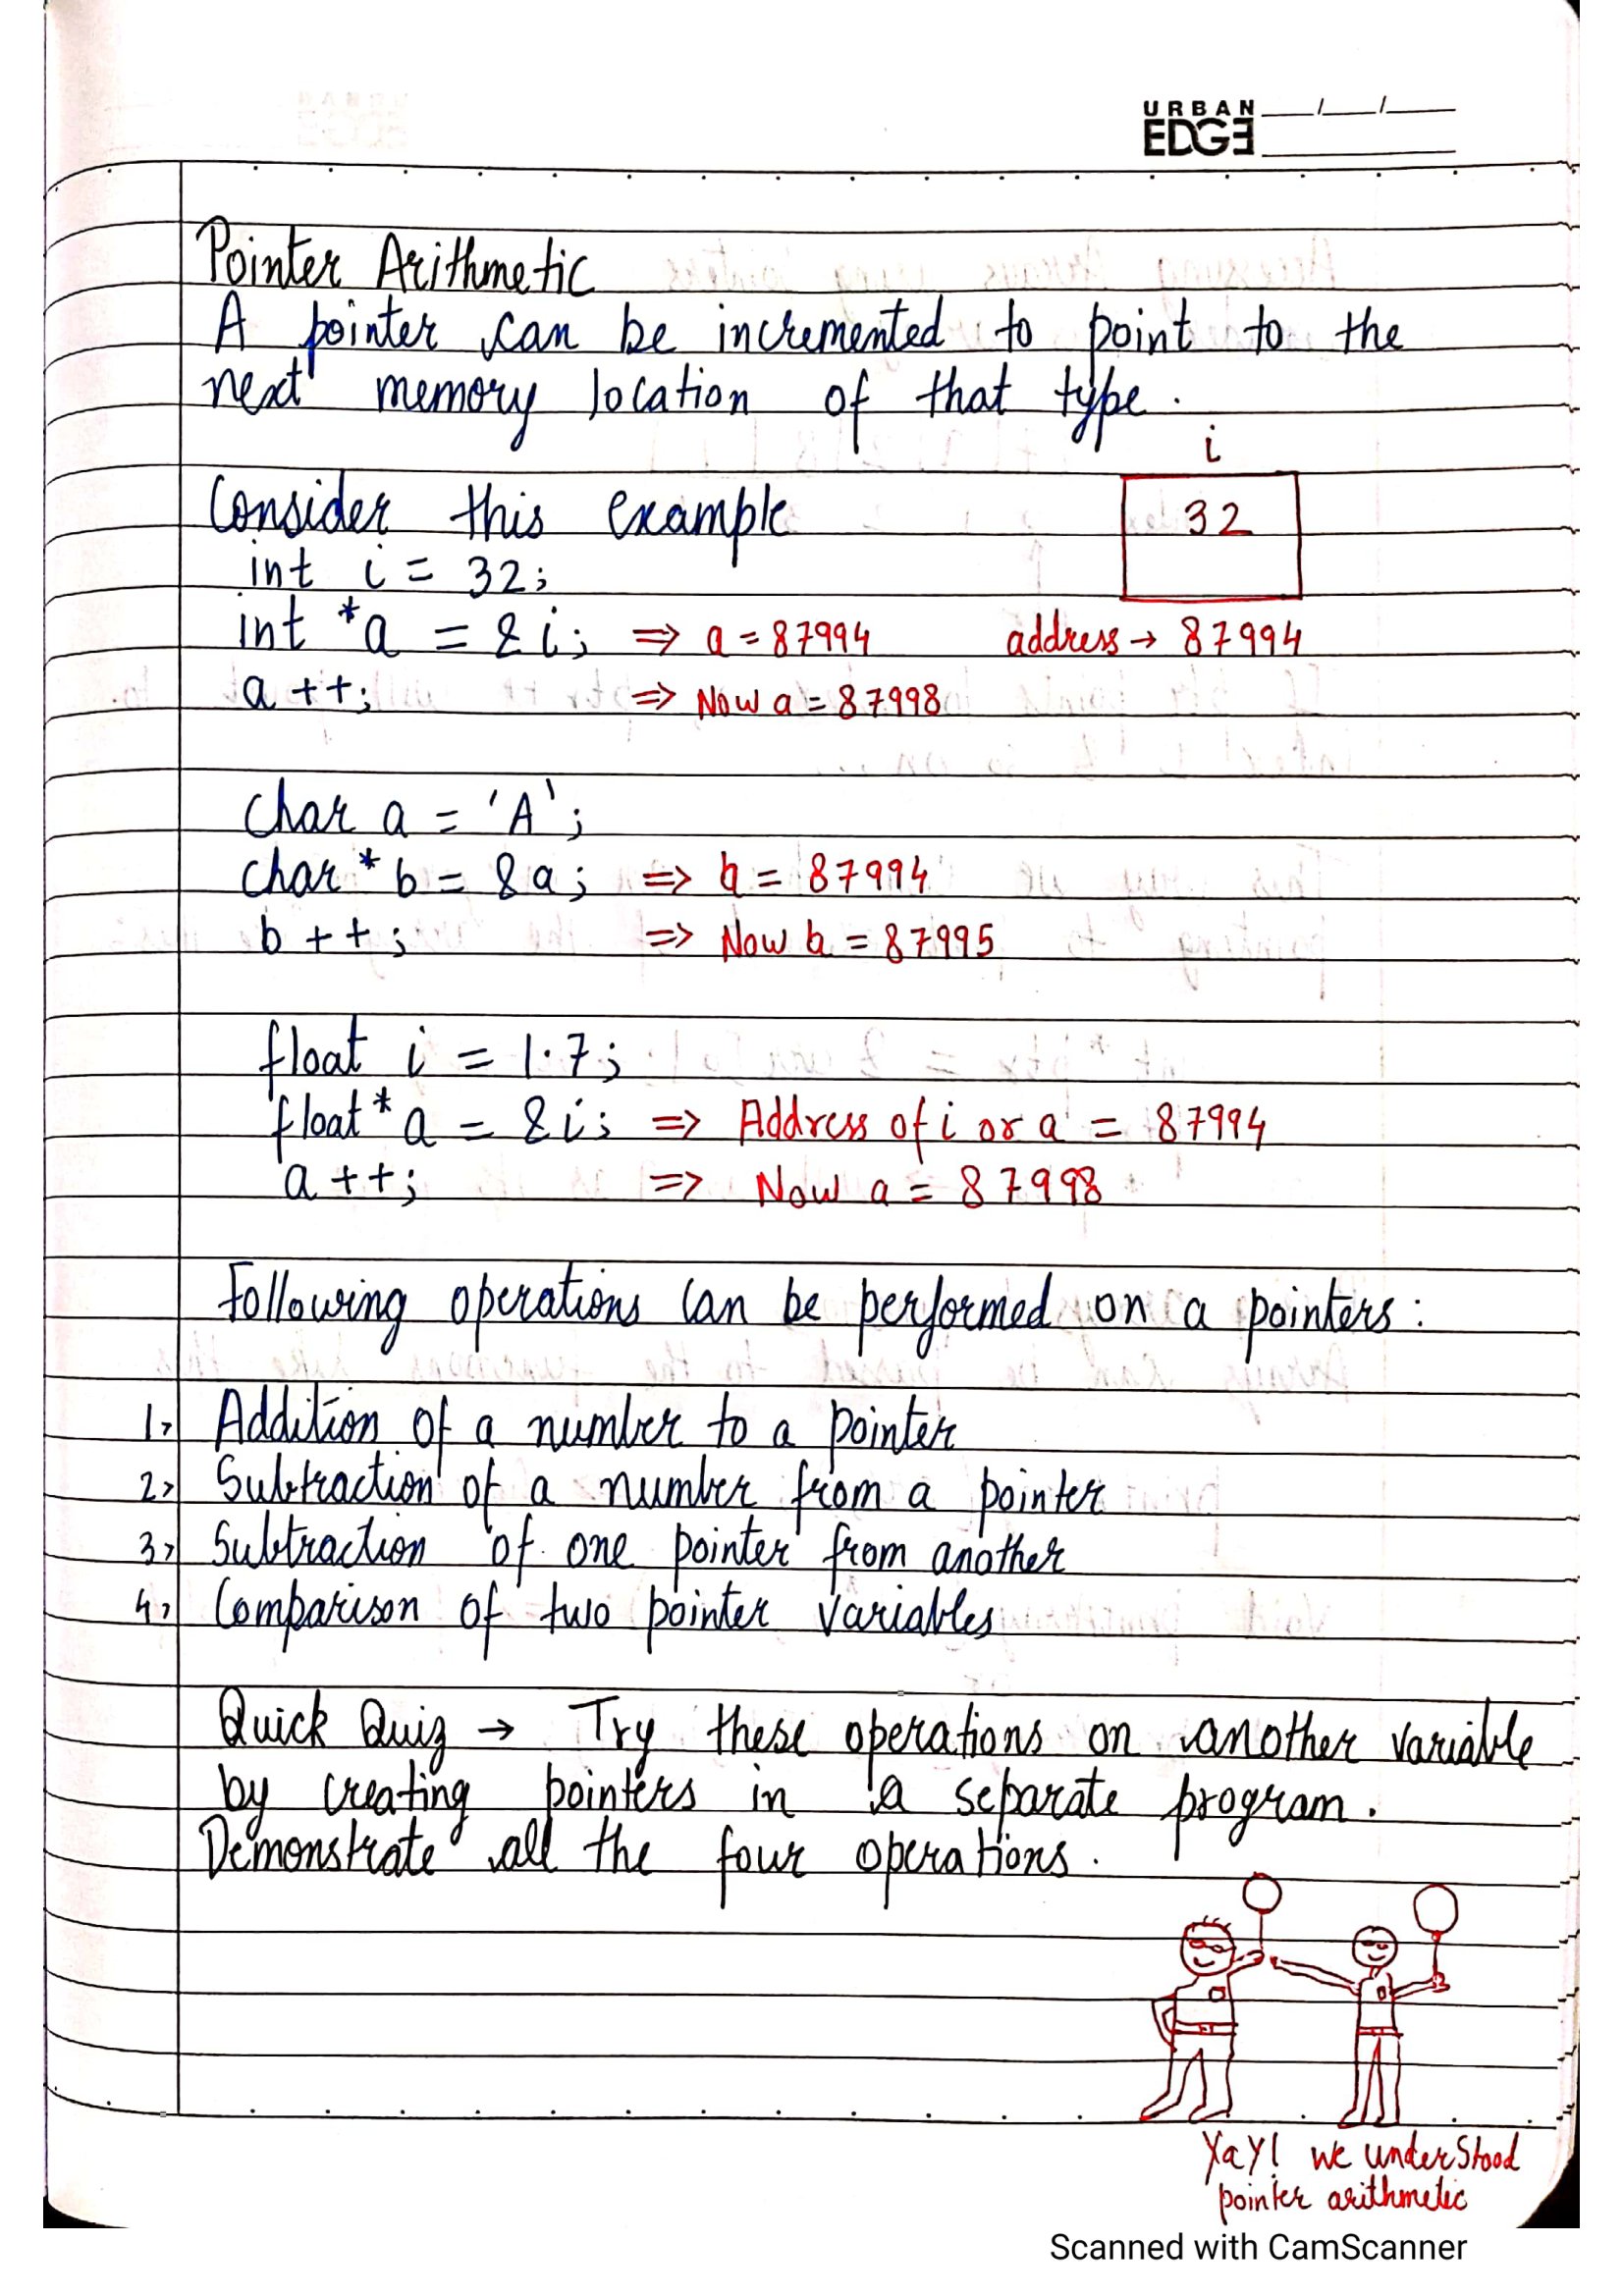 URBAN
EDGE
Pointer Arithmetic
A pointer can be incremented to point to the
next memory location of that type.
i
Consider this example
32
int i = 32;
int *a = &i; => a = 87994 address → 87994
a ++; => Now a = 87998
char a = 'A';
char * b = &a; => b = 87994
b ++; => Now b = 87995
float i = 1.7;
float * a = &i; => Address of i or a = 87994
a ++; => Now a = 87998
Following operations can be performed on a pointers:
1> Addition of a number to a pointer
2> Subtraction of a number from a pointer
3> Subtraction of one pointer from another
4> Comparison of two pointer variables
Quick Quiz → Try these operations on another variable
by creating pointers in a separate program.
Demonstrate all the four operations.
YaY! we understood
pointer arithmetic
Scanned with CamScanner